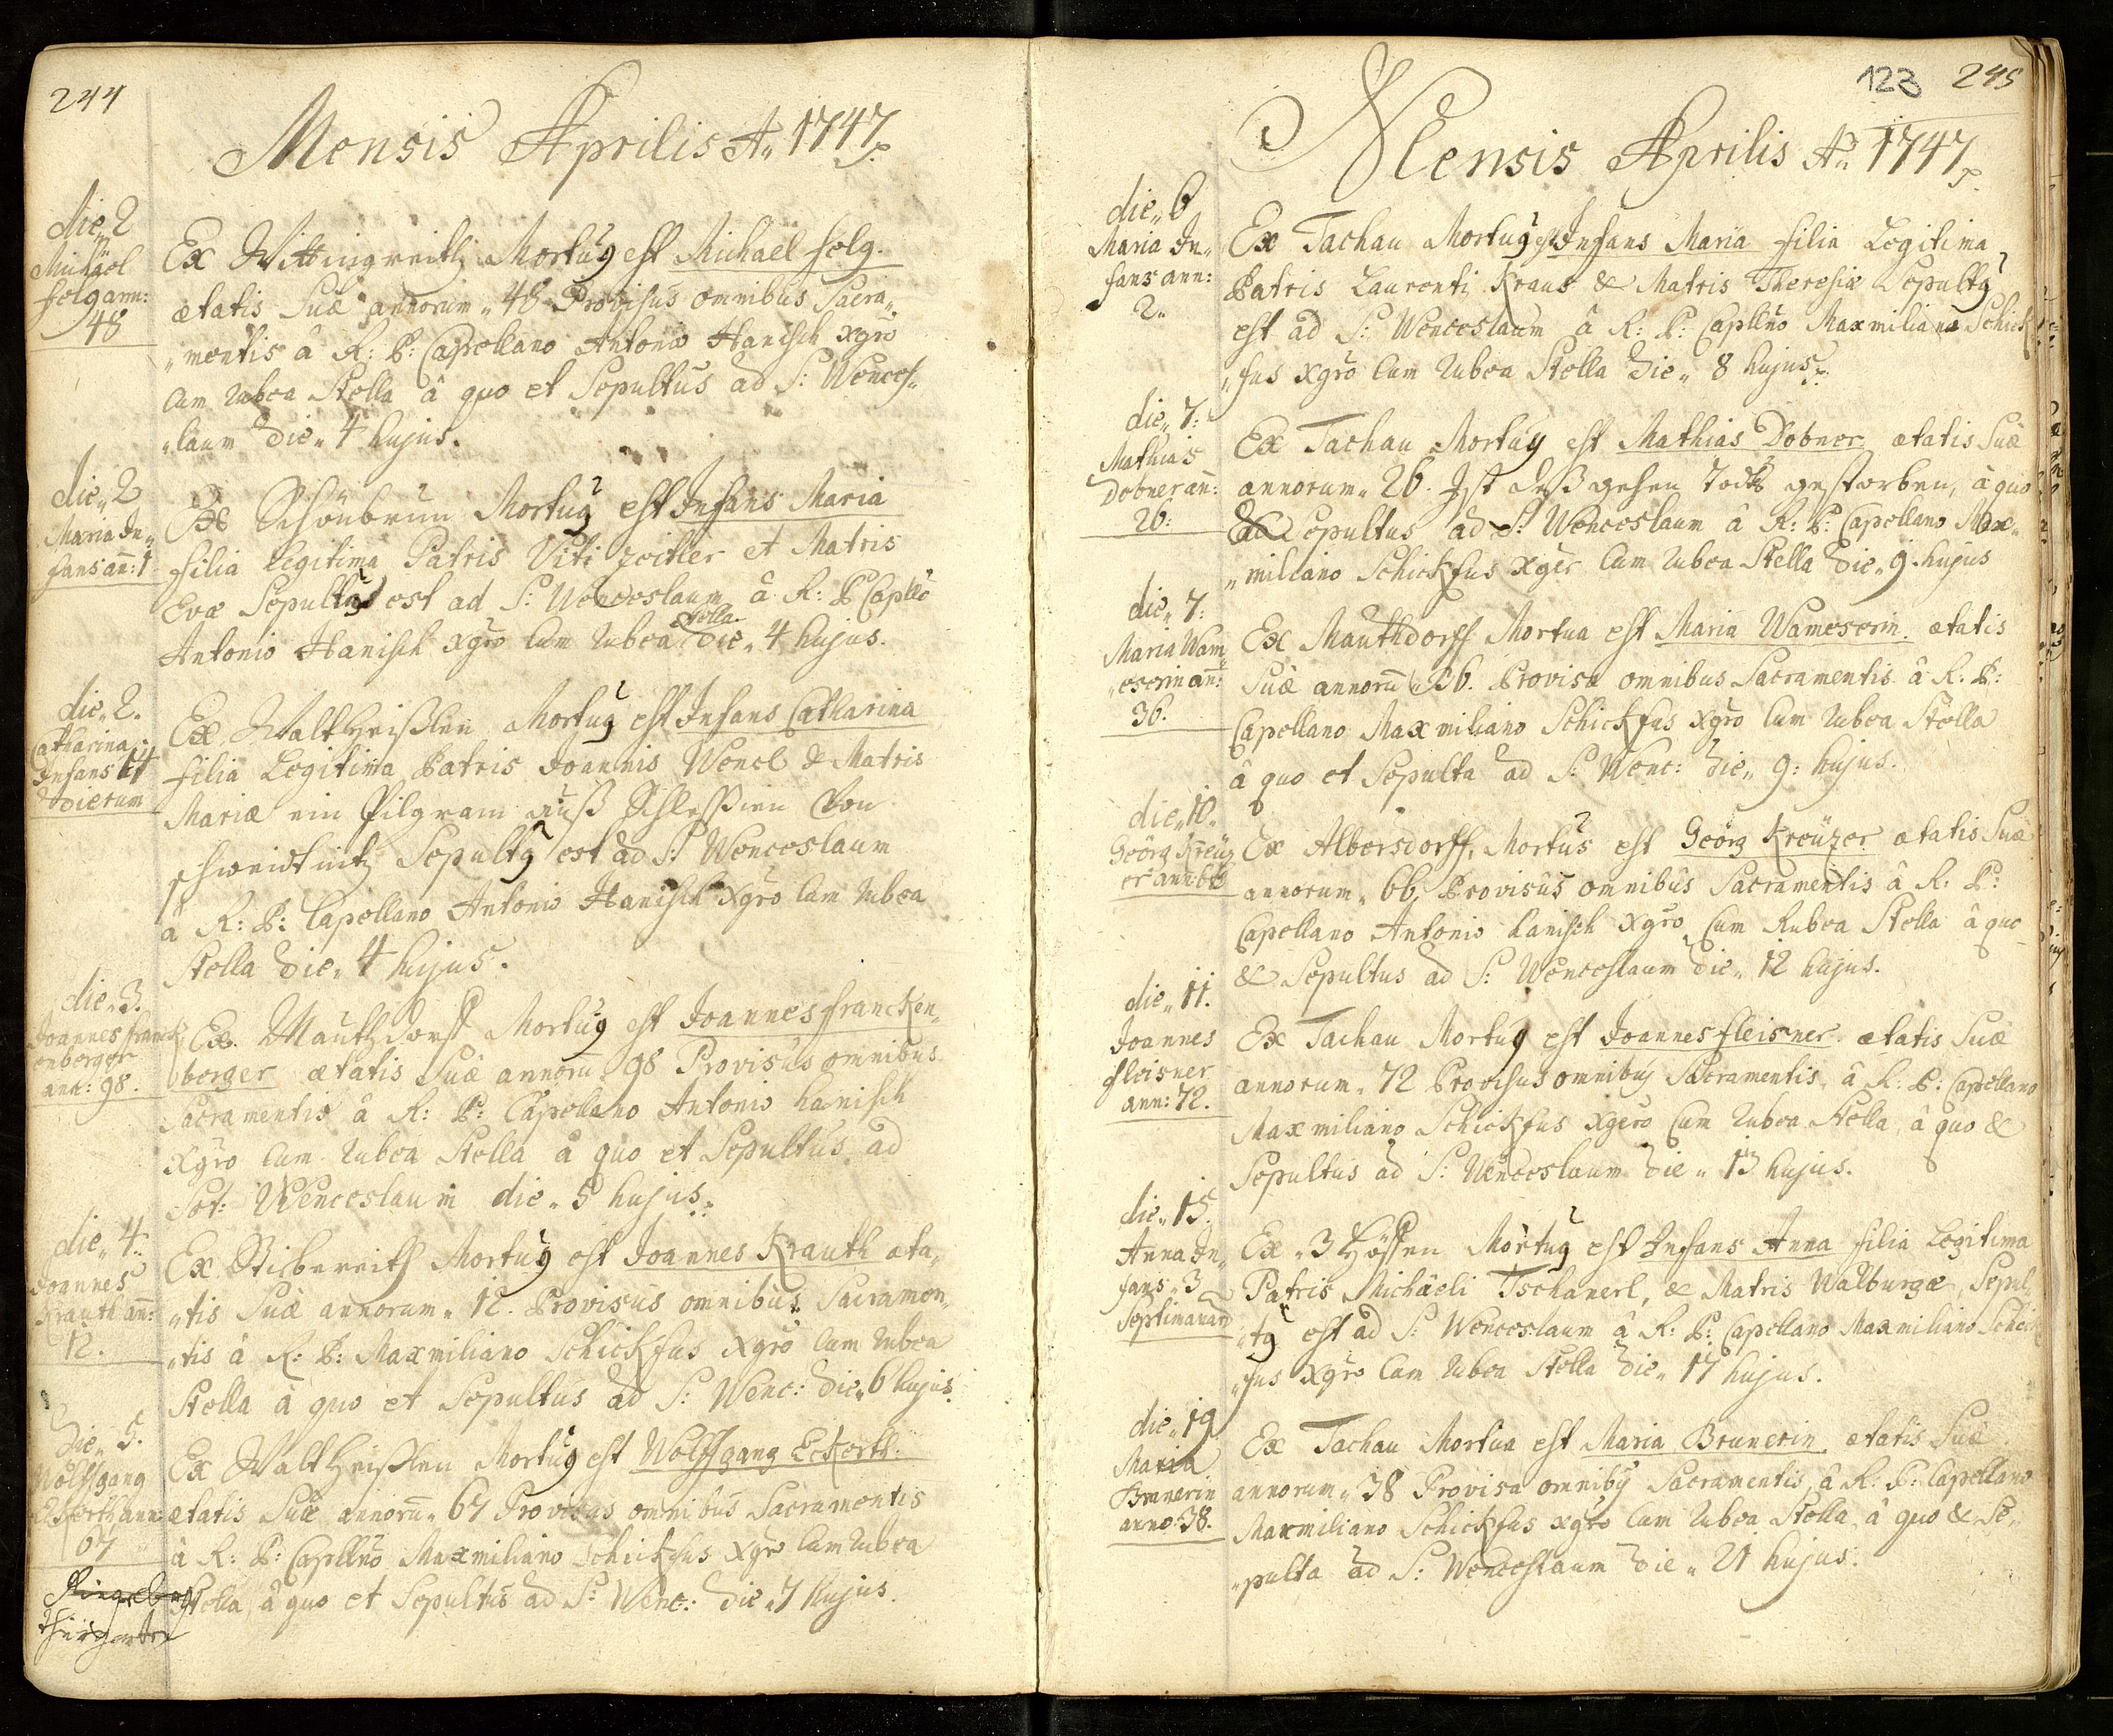 244
Mensis Aprilis Aº 1747
die„ 2
Michäel
felg ann:
48
Ex Wittingreith Mortuꝰ est Michael felg.
ætatis Suæ annorum„ 48 Provisus omnibus Sacra„
„mentis â R: P: Capellano Antonio Hanisch Xgro
Cum Rubea Stella â quo et Sepultus ad S: Wences„
„laum die„ 4 hujus.
die„ 2
Maria In„
fans añ: 1
Ex Schönbrun Mortuꝰ est Infans Maria
filia Legitima Patris Viti Zeitler et Matris
Evæ Sepultꝰ est ad S: Wenceslaum â R: P Capllo
Antonio Hanisch Xgro Cum Rubea Stella die„ 4 hujus.
die„ 2.
Catharina
Infans 14
dierum
Ex Waltheißlen Mortuꝰ est Infans Catharina
filia Legitima Patris Joannis Wencl & Matris
Mariæ ein Pilgram auß Schlessien Von
schweidnitz Sepultꝰ est ad S: Wenceslaum
â R: P: Capellano Antonio Hanisch Xgro Cum Rubea
Stella die„ 4 hujus.
die„ 3.
Joannes franck
enberger
ann: 98.
Ex Mauthdorff Mortuꝰ est Joannes francken„
berger ætatis Suæ annorũ„ 98 Provisus omnibus
Sacramentis â R: P: Capellano Antonio hanisch
Xgro Cum Rubea Stella â quo et Sepultus ad
Sct: Wenceslaum die„ 5 hujus.
die„ 4.
Joannes
Krauth añ:
12.
Ex Stiebereith Mortuꝰ est Joannes Krauth æta„
„tis Suæ annorum„ 12. Provisus omnibus Sacramen„
„tis â R: P: Maxmiliano Schickfus Xgro Cum Rubea
Stella â quo et Sepultus ad S: Wenc: die„ 6 hujus
die„ 5.
Wolffgang
Eckerth ann:
67
Ex Waltheißlen Mortuꝰ est Wolffgang Eckerth.
ætatis Suæ annorũ„ 67 Provisus omnibus Sacramentis
â R: P: Capllno Maxmiliano Schickfus Xgro Cum Rubea
Stella, â quo et Sepultus ad S: Wenc: die„ 7 hujus.
thiergarten
123 245
Mensis Aprilis Aº 1747
die„ 6
Maria In„
fans ann:
2.
Ex Tachau Mortuꝰ est Infans Maria filia Legitima
Patris Laurenti Kraus & Matris Theresiæ Sepultꝰ
est ad S: Wenceslaum â R: P: Capllno Maxmiliano Schick
„fus Xgro Cum Rubea Stella die„ 8 hujus.
die„ 7:
Mathias
Dobner añ:
26:
Ex Tachau Mortuꝰ est Mathias Dobner ætatis Suæ
annorum„ 26. Ist deß gehen Todts gestorben, â quo
& Sepultus ad S: Wenceslaum â R: P: Capellano Max„
„miliano Schickfus Xger Cum Rubea Stella die„ 9 hujus
die„ 7:
Maria Wam„
„eserin añ:
36.
Ex Mauthdorff Mortua est Maria Wameserin ætatis
Suæ annorũ„ 36. Provisa omnibus Sacramentis â R: P:
Capellano Maxmiliano Schickfus Xgro Cum Rubea Stella
â quo et Sepulta ad S: Wenc: die„ 9: hujus.
die„ 10.
Geörg Kreüz
er ann: 66
Ex Albersdorff, Mortus est Geörg Kreüzer ætatis Suæ
annorum„ 66, Provisus omnibus Sacramentis â R: P:
Capellano Antonio hanisch Xgro Cum Rubea Stella â quo
& Sepultus ad S: Wenceslaum die„ 12 hujus.
die„ 11.
Joannes
fleisner
ann: 72.
Ex Tachau Mortuꝰ est Joannes fleisner ætatis Suæ
annorum„ 72 Provisus omnibꝰ Sacramentis, â R: P: Capellano
Maxmiliano Schickfus Xgero Cum Rubea Stella, â quo &
Sepultus ad S: Wenceslaum die„ 13 hujus.
die„ 15.
Anna In„
fans„ 3
Septimanar
Ex„ 3 Höffen Mortuꝰ est Infans Anna filia Legitima
Patris Michäeli Tschanerl, & Matris Walburgæ, Sepul„
„tꝰ est ad S: Wenceslaum â R: P: Capellano Maxmiliano Schick
„fus Xgro Cum Rubea Stella die„ 17 hujus.
die„ 19
Maria
Brunerin
anno: 38.
Ex Tachau Mortua est Maria Brunerin ætatis Suæ
annorum„ 38 Provisa omnibꝰ Sacramentis, â R: P: Capellano
Maxmiliano Schickfus Xgro Cum Rubea Stella, â quo & Se„
„pulta ad S: Wenceslaum die„ 21 hujus.